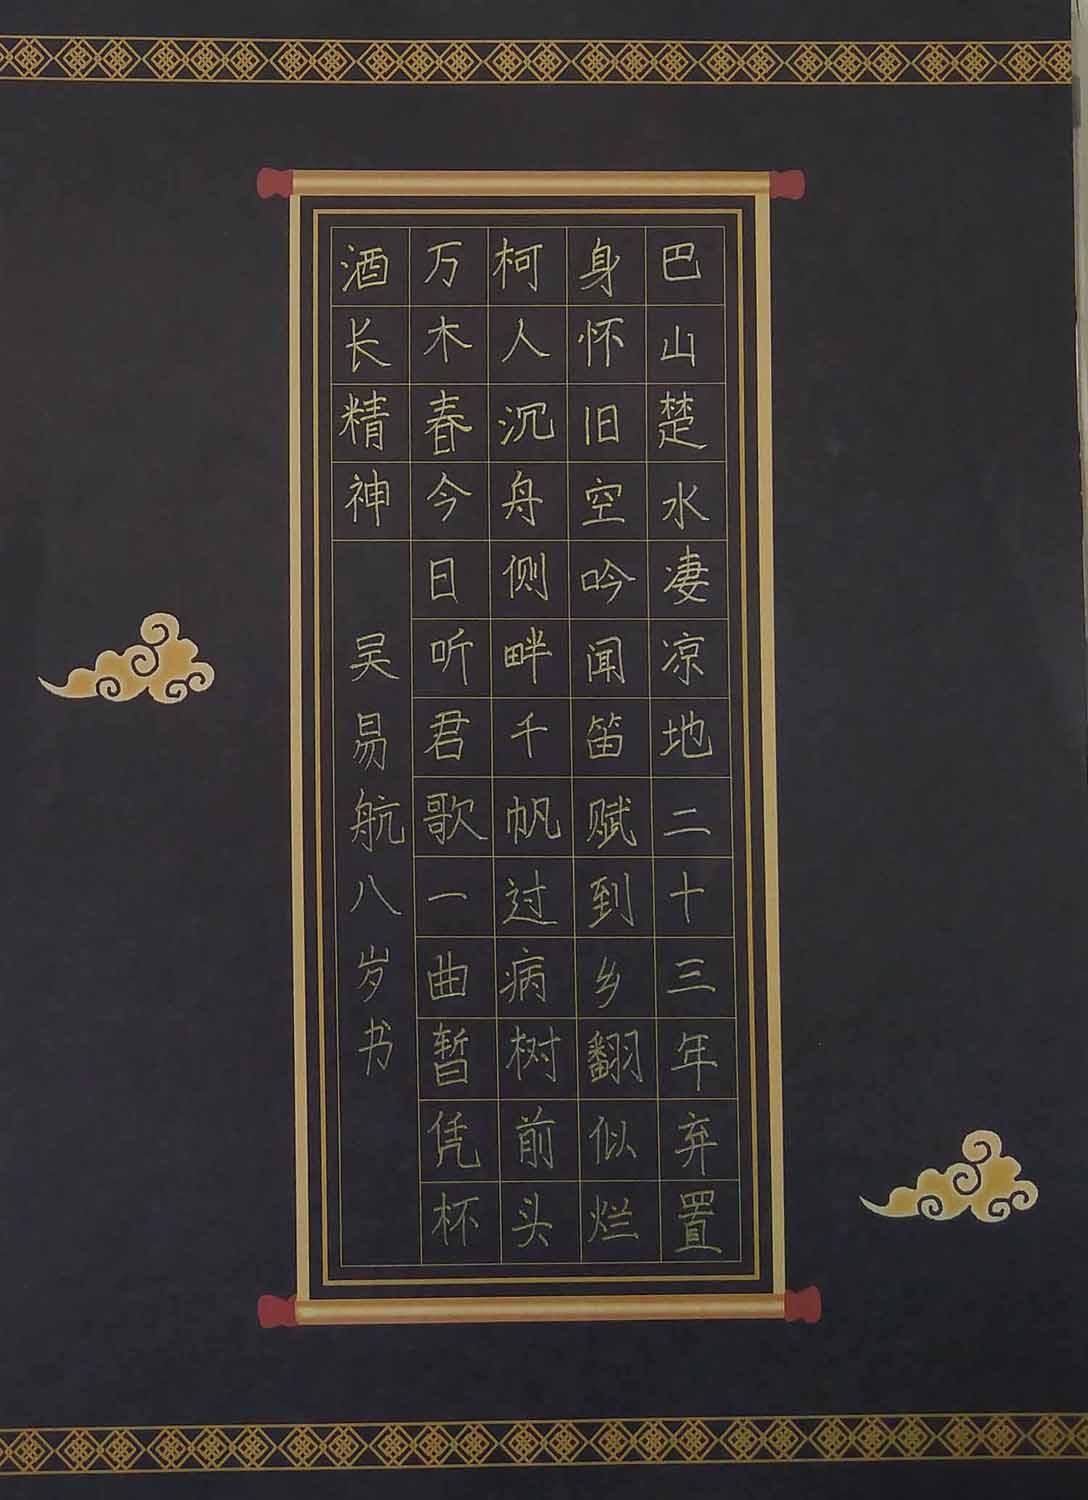 巴山楚水凄凉地二十三年弃置
身怀旧空吟闻笛赋到乡翻似烂
柯人沉舟侧畔千帆过病树前头
万木春今日听君歌一曲暂凭杯
酒长精神
吴易航八岁书